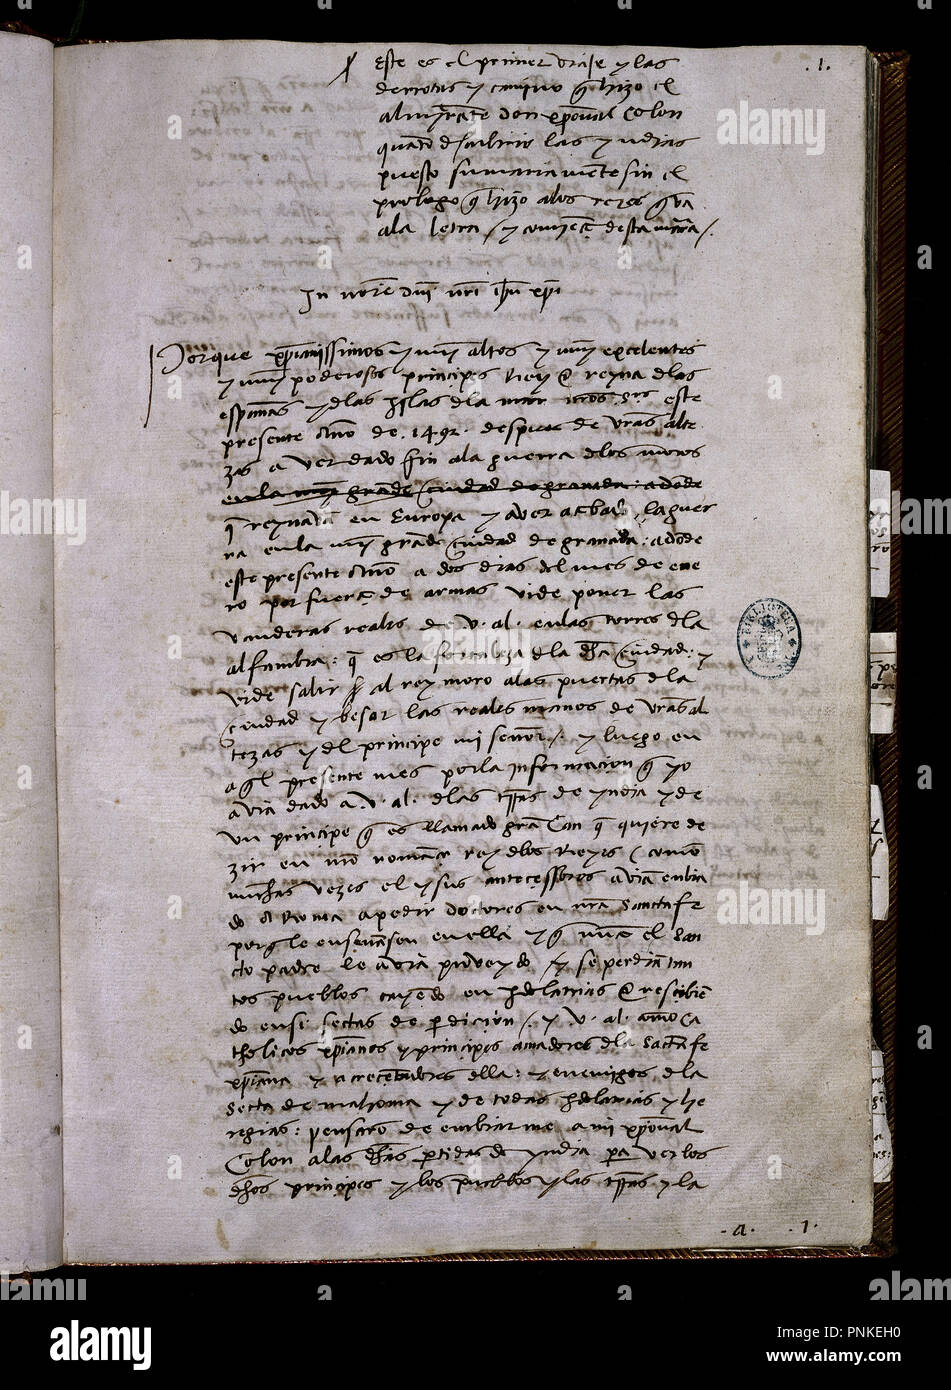 .1.
Este es el primer viaje y las
derrotas y camino q̃ hizo el
almirãte don xp̃oual Colon
quãdo descubrio las yndias
puesto sumariamẽte sin el
prologo q̃ hizo alos reyes q̃ va
ala letra / y comiẽça desta mãra /.
In noĩe dñi nr̃i ihũ xp̃i
Porque xp̃ianissimos y muy altos y muy excelentes
y muy poderosos principes Rey & reyna dlas
españas y dlas yslas dla mar nr̃os Srẽs este
presente año de .1492. despues de vr̃as alte
zas aver dado fin ala guerra dlos moros
enla muy grande ciudad de granada: adõde
q̃ reynavã en Europa y aver acabado la guer
ra enla muy grande ciudad de granada: adõde
este presente año a dos dias del mes de ene
ro por fuerça de armas vide poner las
vanderas reales de .v. al. enlas torres dla
alfambra: q̃ es la fortaleza dla dh̃a ciudad: y
vide salir al rey moro alas puertas dla
ciudad y besar las reales manos de vr̃as al
tezas y dl principe mi señor /. y luego en
aq̃l presente mes por la informacion q̃ yo
avia dado a .v. al. dlas trr̃as de yndia y de
vn principe q̃ es llamado grã Can q̃ quiere de
zir en nr̃o romãce rey dlos Reyes / como
muchas vezes el y sus antecessores aviã enbia
do a Roma a pedir doctores en nr̃a Sancta fe
porq̃ le enseñasen enella y q̃ nũca el San
cto padre le avia proveydo / y se perdiã tan
tos pueblos cayẽdo en ydolatrias & rescibiẽ
do ensi sectas de p̃dicion /. y .v. al. como ca
tholicos xp̃ianos y principes amadores dla sãcta fe
xp̃iana y acrecẽtadores dlla: y enemigos dla
secta de mahoma y de todas ydolatrias y he
regias: pensarõ de enbiarme a mi xp̃oual
Colon alas dh̃as p̃tidas de yndia p̃a ver los
dh̃os principes y los pueblos y las trr̃as y la
.a. .1.
BIBLIOTECA
alamy
Image ID: PNKEH0
www.alamy.com